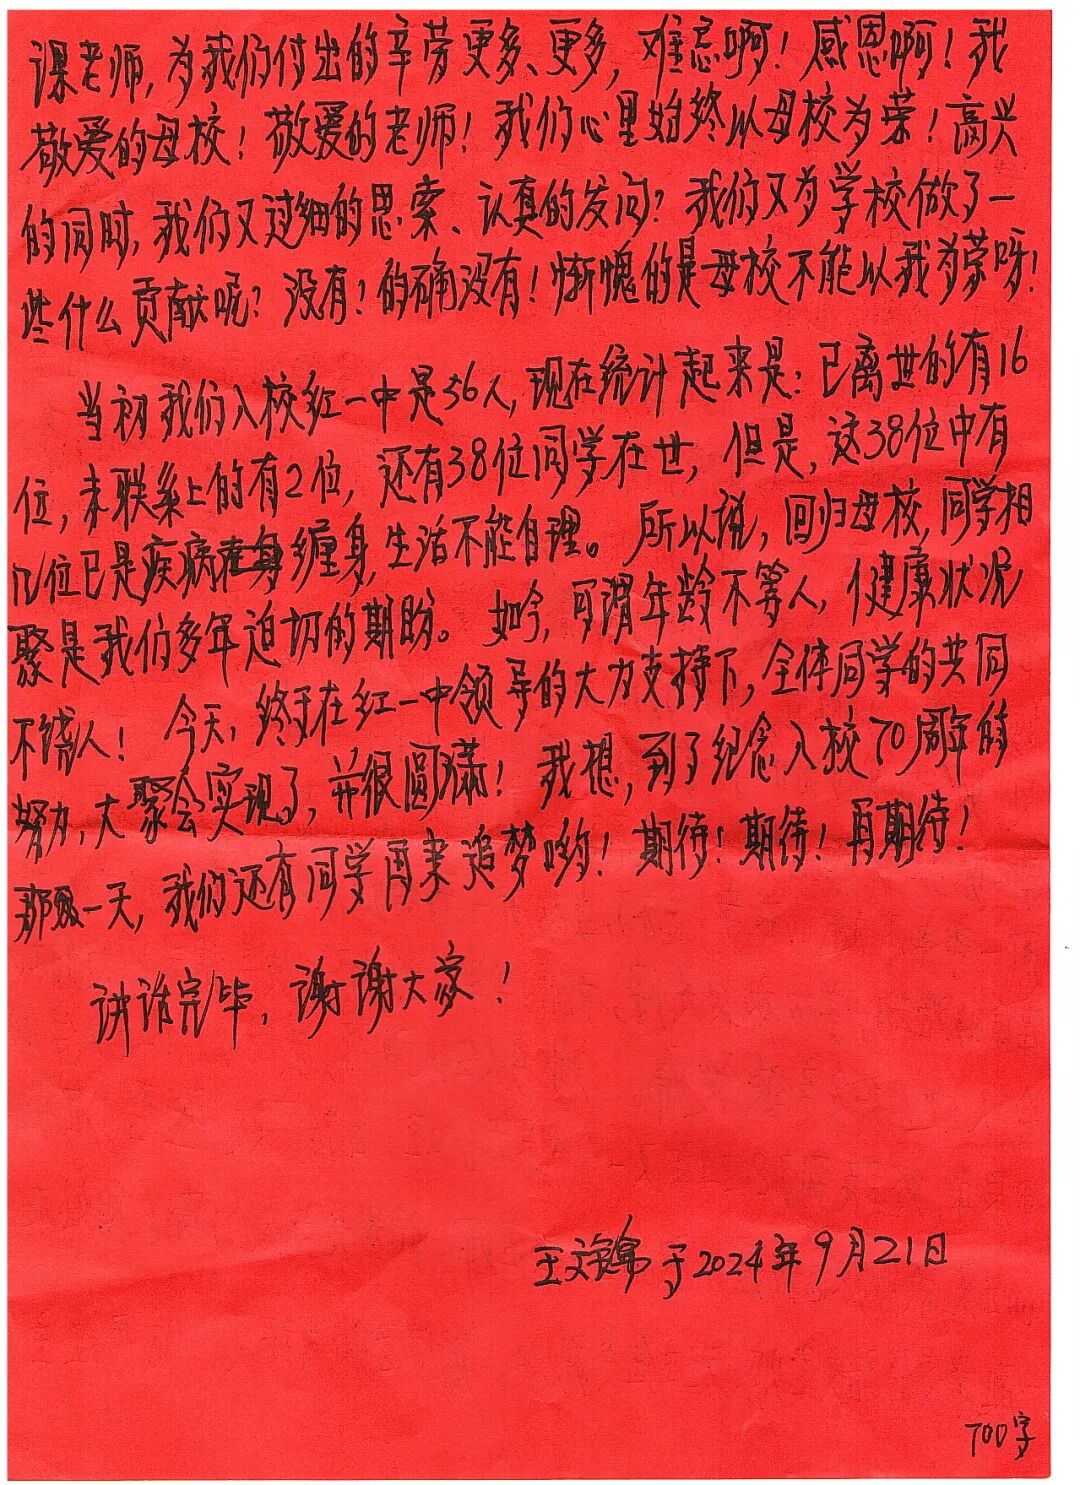 课老师，为我们付出的辛劳更多、更多，难忘啊！感恩啊！我
敬爱的母校！敬爱的老师！我们心里始终以母校为荣！高兴
的同时，我们又过细的思索、认真的发问？我们又为学校做了一
些什么贡献呢？没有！的确没有！惭愧的是母校不能以我为荣呀！
当初我们入校红一中是56人，现在统计起来是：已离世的有16
位，未联系上的有2位，还有38位同学在世，但是，这38位中有
几位已是疾病缠身，生活不能自理。所以说，回归母校，同学相
聚是我们多年迫切的期盼。如今，可谓年龄不等人，健康状况
不饶人！今天，终于在红一中领导的大力支持下，全体同学的共同
努力，大聚会实现了，并很圆满！我想，到了纪念入校70周年的
那一天，我们还有同学再来追梦哟！期待！期待！再期待！
讲话完毕，谢谢大家！
王文锦于2024年9月21日
700字